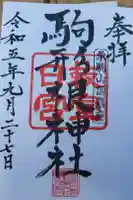 奉拝
駒形根神社
勅宣
日宮
令和五年九月二十七日